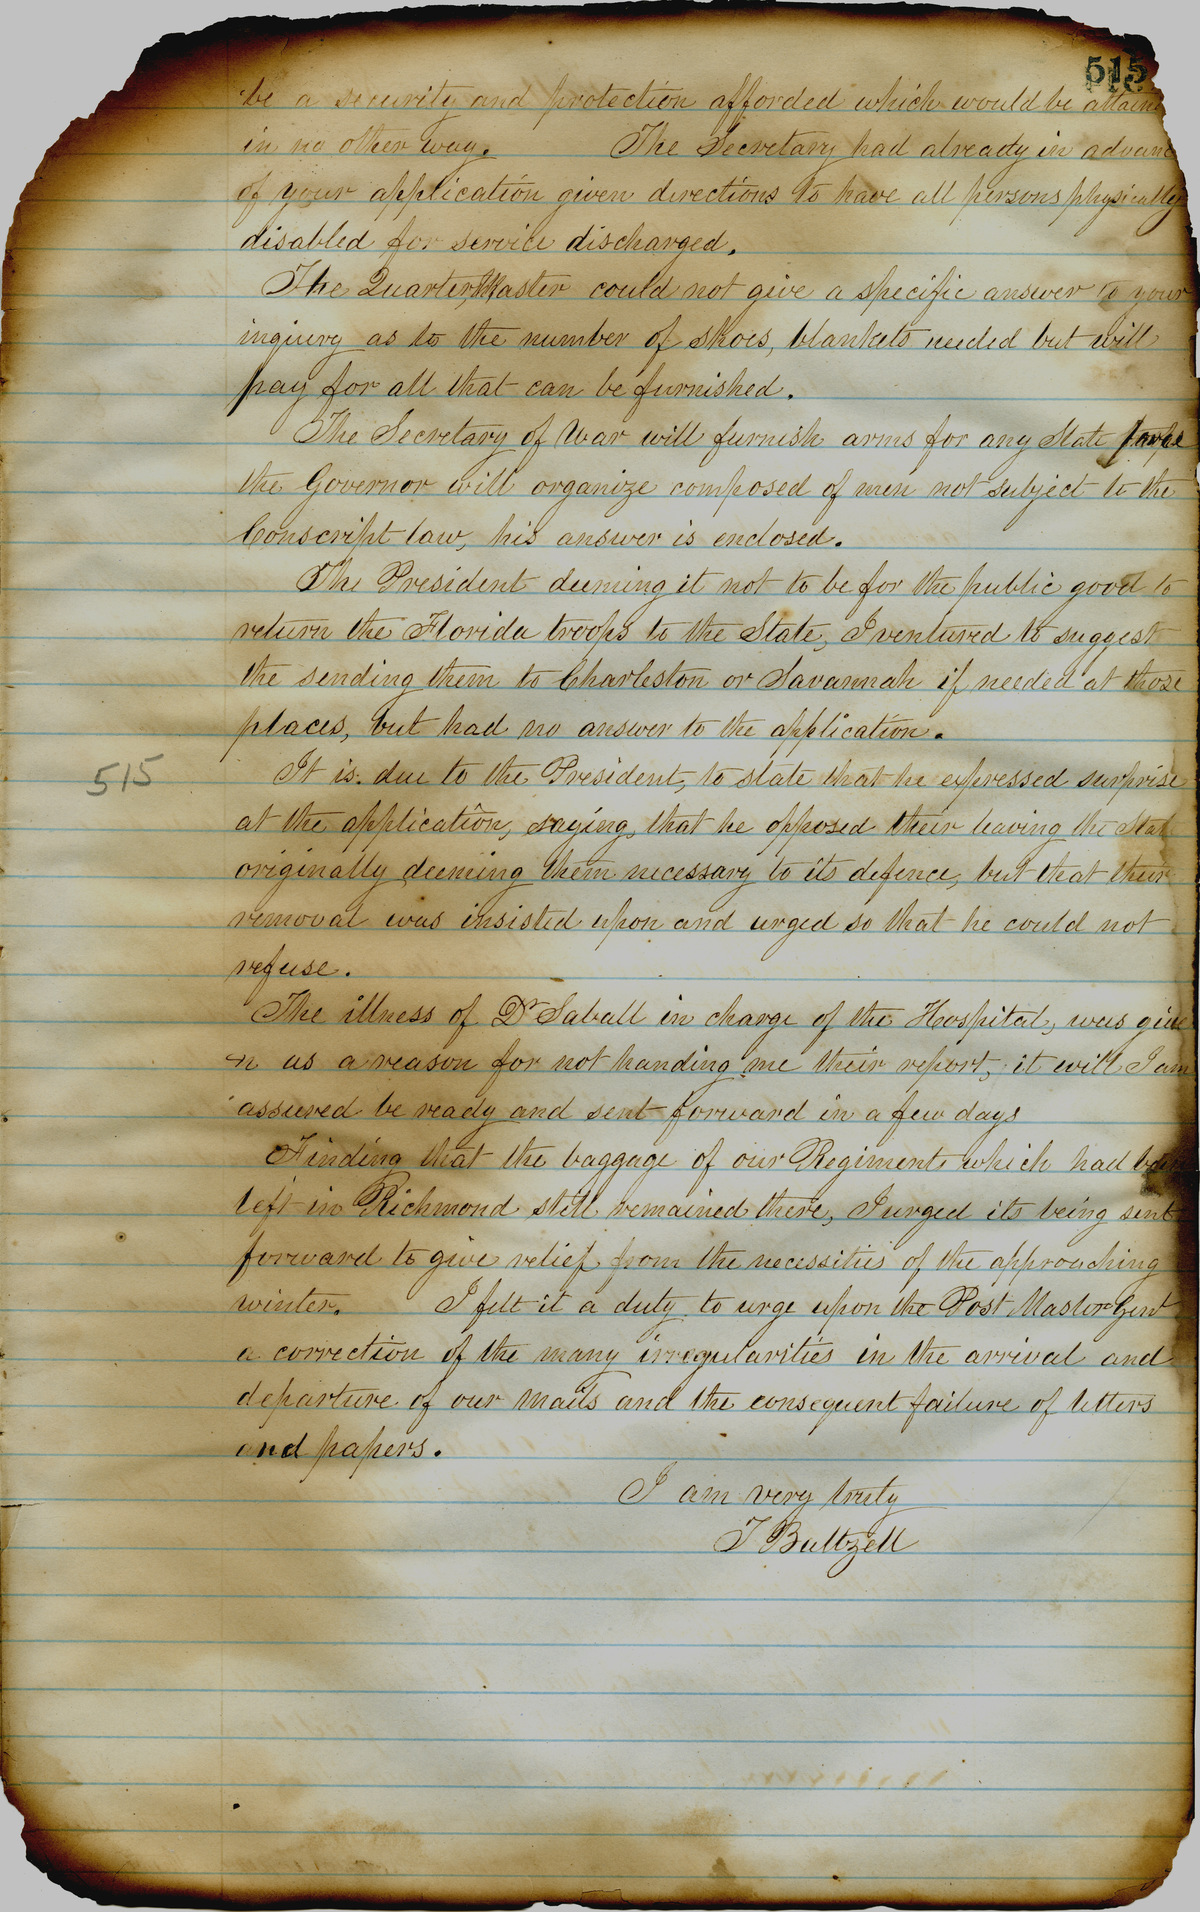 515
be a security and protection afforded which would be attain
in no other way. The Secretary had already in advanc
of your application given directions to have all persons physically
disabled for service discharged.
The QuarterMaster could not give a specific answer to your
inquiry as to the number of shoes, blankets needed but will
pay for all that can be furnished.
The Secretary of War will furnish arms for any State
the Governor will organize composed of men not subject to the
Conscript law, his answer is enclosed.
The President deeming it not to be for the public good to
return the Florida troops to the State, I ventured to suggest
the sending them to Charleston or Savannah if needed at those
places, but had no answer to the application.
515
It is due to the President, to state that he expressed surprise
at the application, saying, that he opposed their leaving the Stat
originally deeming them necessary to its defence, but that their
removal was insisted upon and urged so that he could not
refuse.
The illness of Dr Saball in charge of the Hospital, was give
n as a reason for not handing me their report, it will I am
assured be ready and sent forward in a few days
Finding that the baggage of our Regiments which had been
left in Richmond still remained there, I urged its being sent
forward to give relief from the necessities of the approaching
winter. I felt it a duty to urge upon the Post Master Genl
a correction of the many irregularities in the arrival and
departure of our mails and the consequent failure of letters
and papers.
I am very truly
T Baltzell